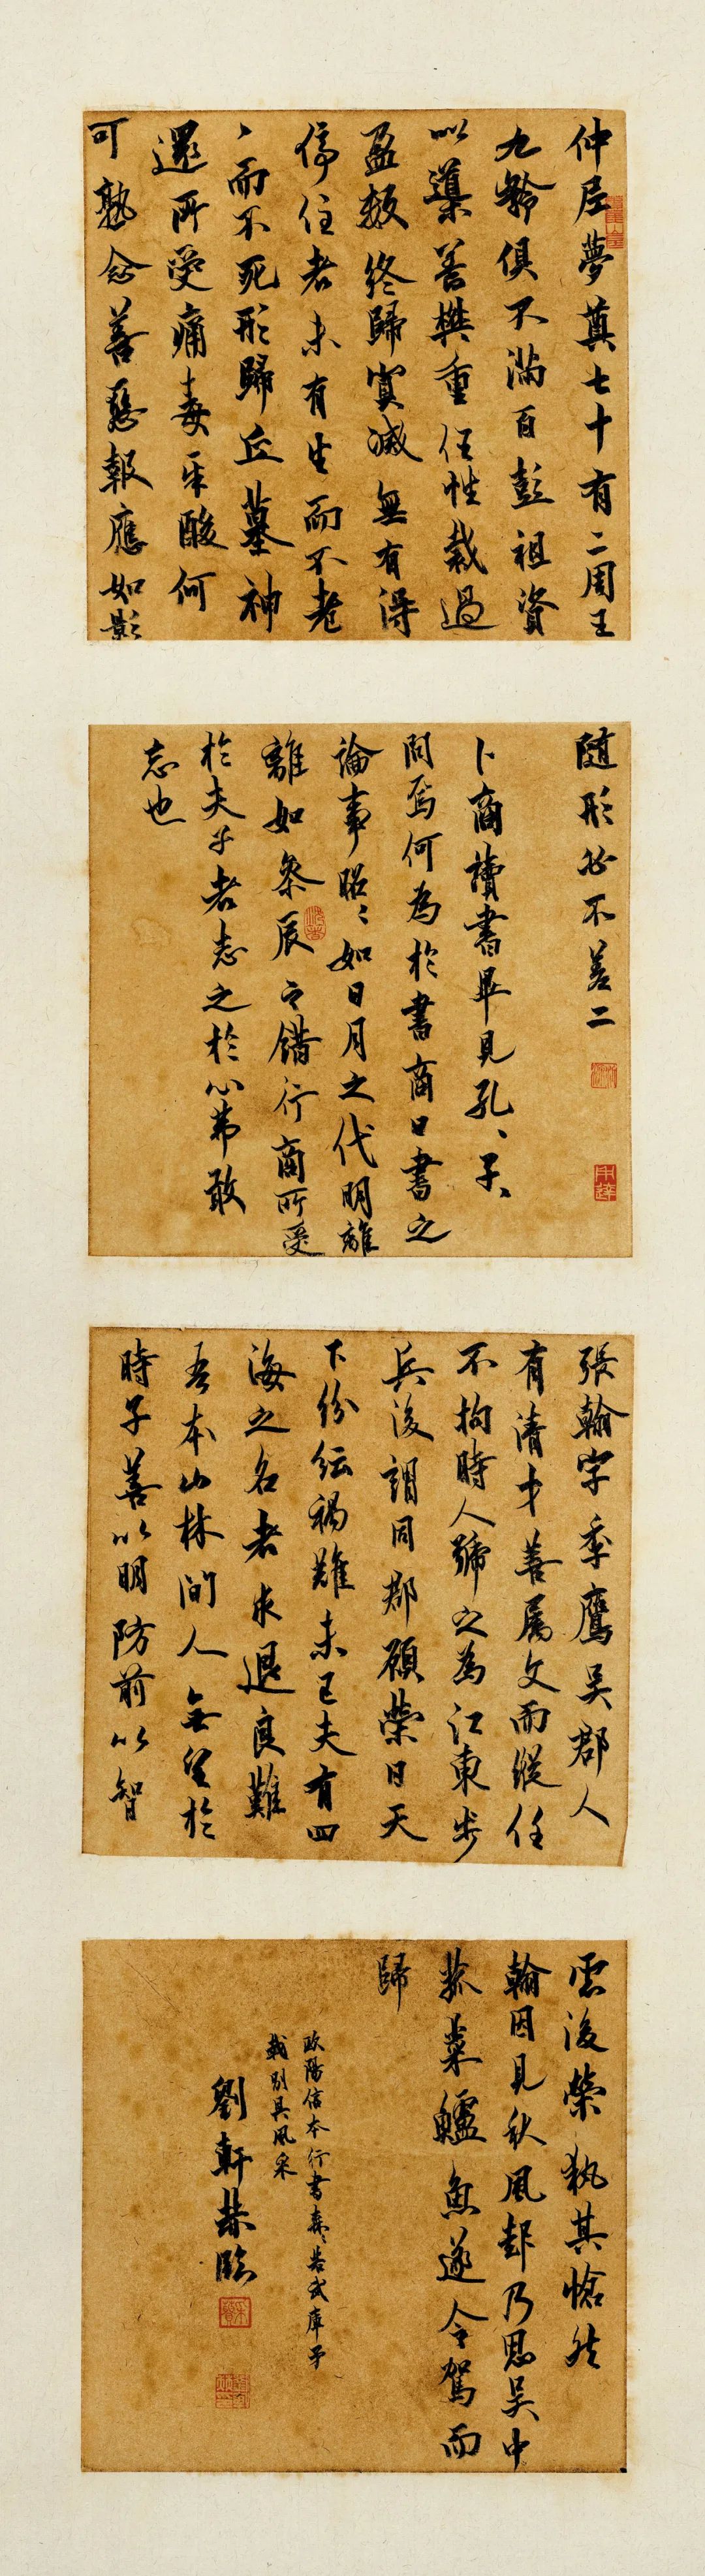 仲尼夢奠七十有二周王
九齡俱不滿百彭祖資
以導養樊重任性裁過
盈數終歸冥滅無有得
停住者未有生而不老
丶而不死形歸丘墓神
還所受痛毒辛酸何
可熟念善惡報應如影
隨形必不差二
卜商讀書畢見孔丶子丶
問焉何為於書商曰書之
論事昭〻如日月之代明離
離如參辰之錯行商所受
於夫子者志之於心弗敢
忘也
張翰字季鷹吳郡人
有清才善屬文而縱任
不拘時人號之為江東步
兵後謂同郡顧榮曰天
下紛紜禍難未已夫有四
海之名者求退良難
吾本山林間人無望於
時子善以明防前以智
慮後榮執其愴然
翰因見秋風起乃思吳中
菰菜鱸魚遂命駕而
歸
歐陽信本行書森〻若武庫矛
戟別具風采
劉軒恭臨